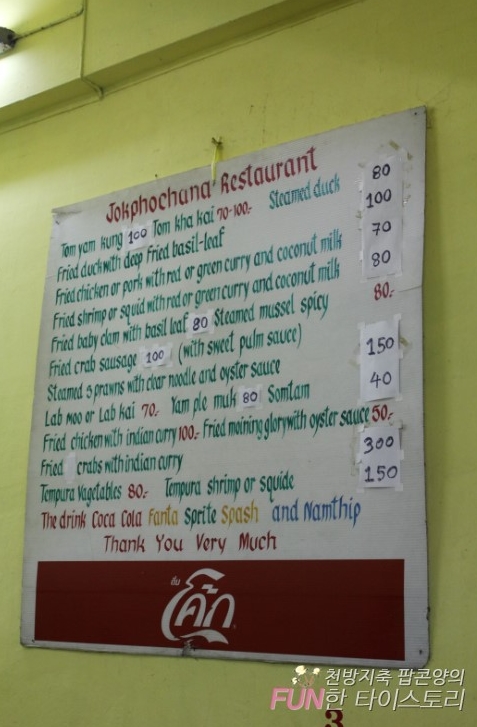 Jokphochana Restaurant
Tom yam kung 100 Tom kha kai 70-100.- Steamed duck 80
Fried duck with deep Fried basil-leaf 100
Fried chicken or pork with red or green curry and coconut milk 70
Fried shrimp or squid with red or green curry and coconut milk 80
Fried baby clam with basil leaf 80 Steamed mussel spicy 80.-
Fried crab sausage 100 (with sweet pulm sauce)
Steamed 3 prawns with clear noodle and oyster sauce 150
Lab moo or Lab kai 70.- Yam ple muk 80 Somtam 40
Fried chicken with indian curry 100.- Fried moining glory with oyster sauce 50.-
Fried crabs with indian curry 300
Tempura Vegetables 80.- Tempura shrimp or squide 150
The drink Coca Cola Fanta Sprite Spash and Namthip
Thank You Very Much
ดื่ม
โค้ก
천방지축 팝콘양의
FUN한 타이스토리
3